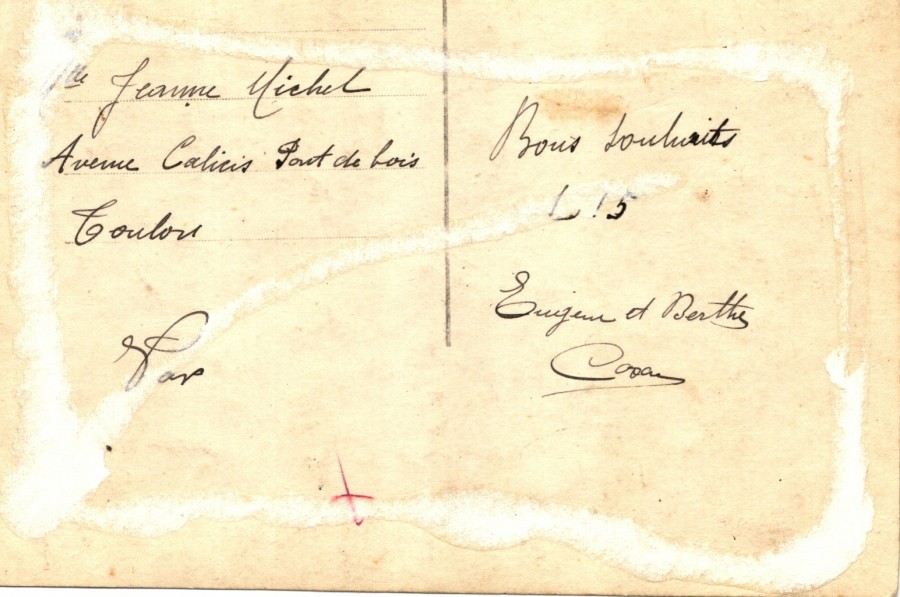 Mlle Jeanne Michel
Avenue Calicis Pont de bois
Toulon
Var
Bons souhaits
L 15
Eugene et Berthe